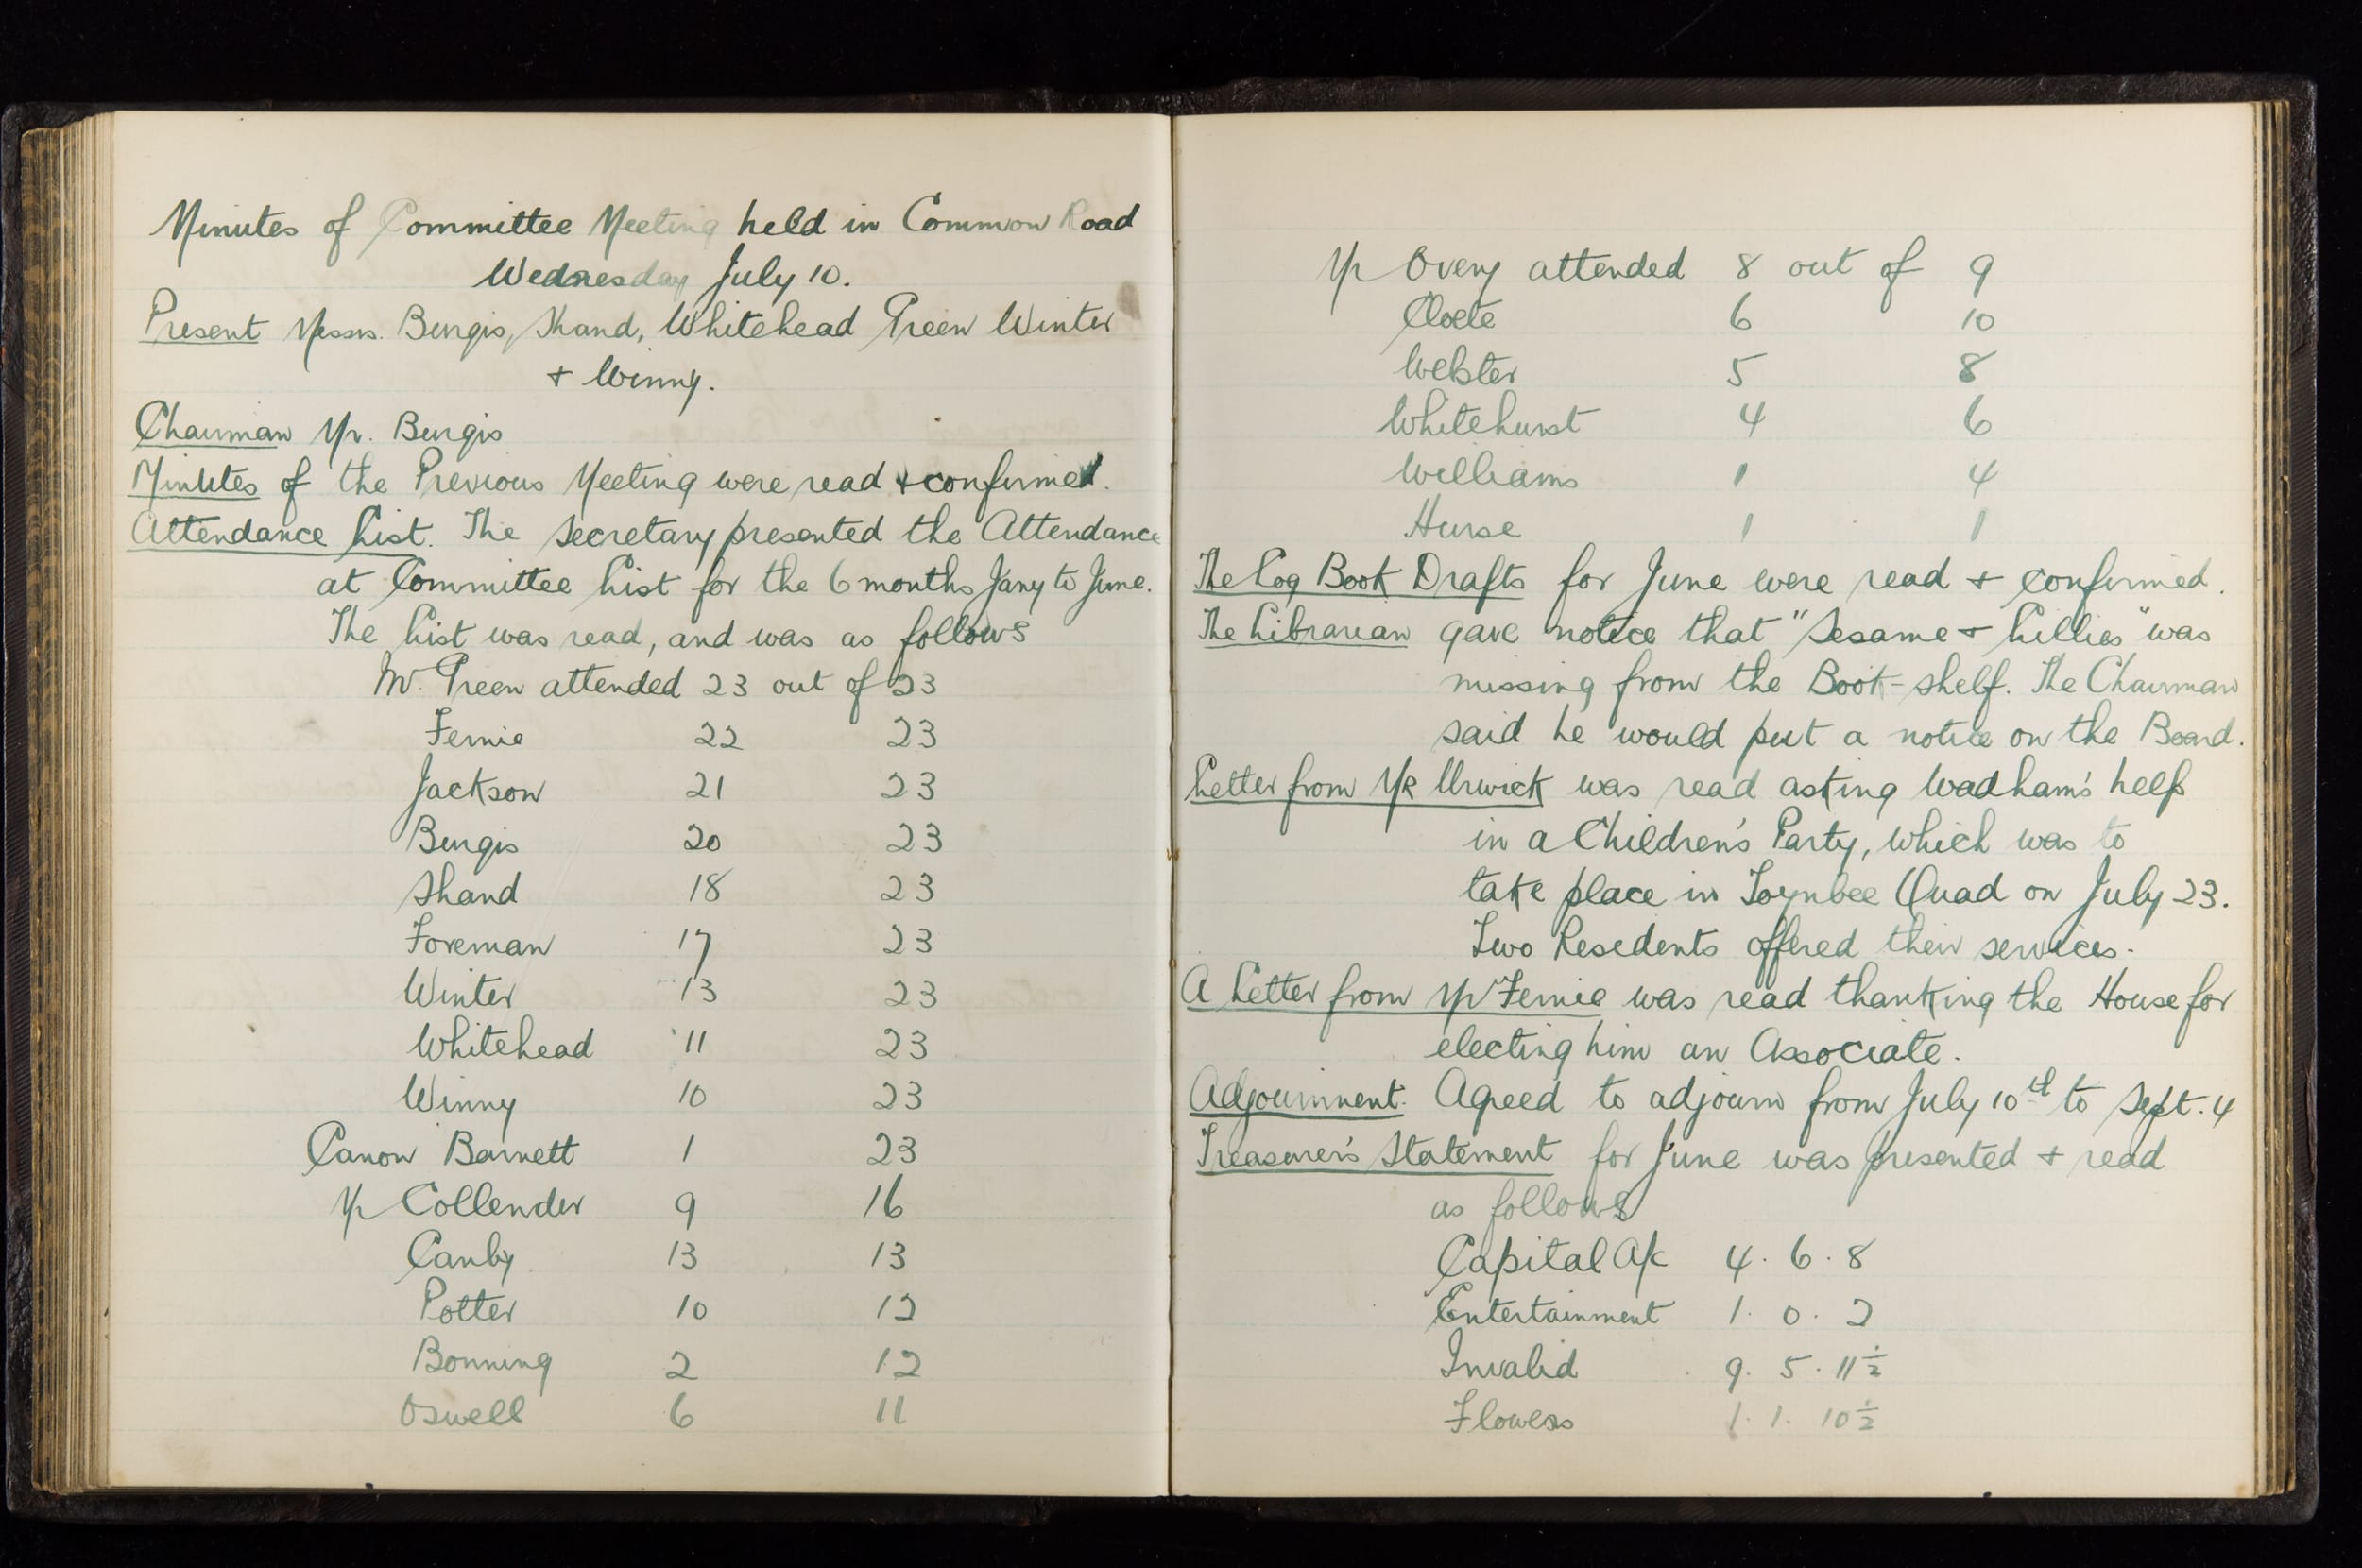 Minutes of Committee Meeting held in Common Road
Wednesday July 10.
Present Messrs. Burgis, Shand, Whitehead Treen Winter
+ Winny.
Chairman Mr. Burgis
Minutes of the Previous Meeting were read + confirmed.
Attendance List. The Secretary presented the Attendance
at Committee List for the 6 months Jany to June.
The List was read, and was as follows
Mr. Treen attended 23 out of 23
Fernie 22 23
Jackson 21 23
Burgis 20 23
Shand 18 23
Foreman 17 23
Winter 13 23
Whitehead 11 23
Winny 10 23
Canon Barnett 1 23
Mr Collender 9 16
Canby 13 13
Potter 10 12
Bonning 2 12
Oswell 6 11
Mr Overy attended 8 out of 9
Cloete 6 10
Webster 5 8
Whitehurst 4 6
Williams 1 4
Hurse 1 1
The Log Book Drafts for June were read + confirmed.
The Librarian gave notice that "Sesame + Lillies" was
missing from the Book-shelf. The Chairman
said he would put a notice on the Board.
Letter from Mr Urwick was read asking Wadham's help
in a Children's Party, which was to
take place in Toynbee Quad on July 23.
Two Residents offered their services.
A Letter from Mr Fernie was read thanking the House for
electing him an Associate.
Adjournment. Agreed to adjourn from July 10th to Sept. 4
Treasurer's Statement for June was presented + read
as follows
Capital A/c 4. 6. 8
Entertainment 1. 0. 2
Invalid 9. 5. 11½
Flowers 1. 1. 10½